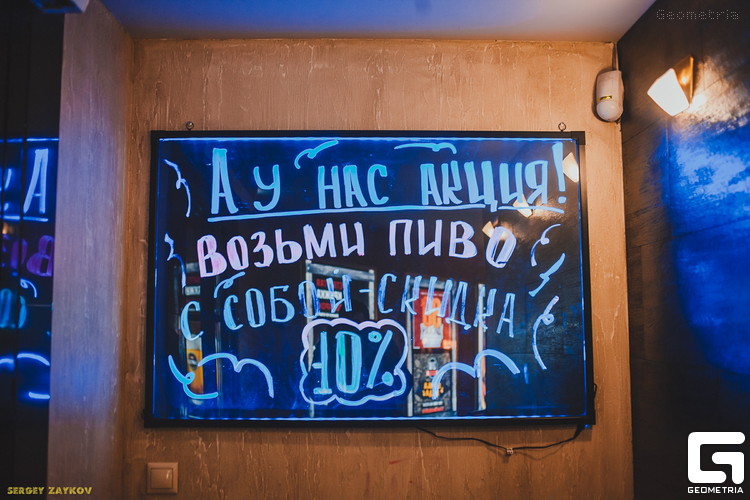 Geometria
А У НАС АКЦИЯ!
ВОЗЬМИ ПИВО
С СОБОЙ-СКИДКА
10%
SERGEY ZAYKOV
GEOMETRIA